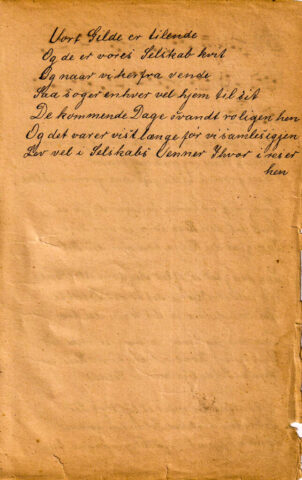 Vort Gilde er tilende
Og de er vores Selskab kvit
Og naar vi herfra vende
Saa søger enhver vel hjem til sit
De kommende Dage svandt roligen hen
Og det varer vist længe før vi samles igjen
Lev vel i Selskabs Venner Ihvor i reser
hen